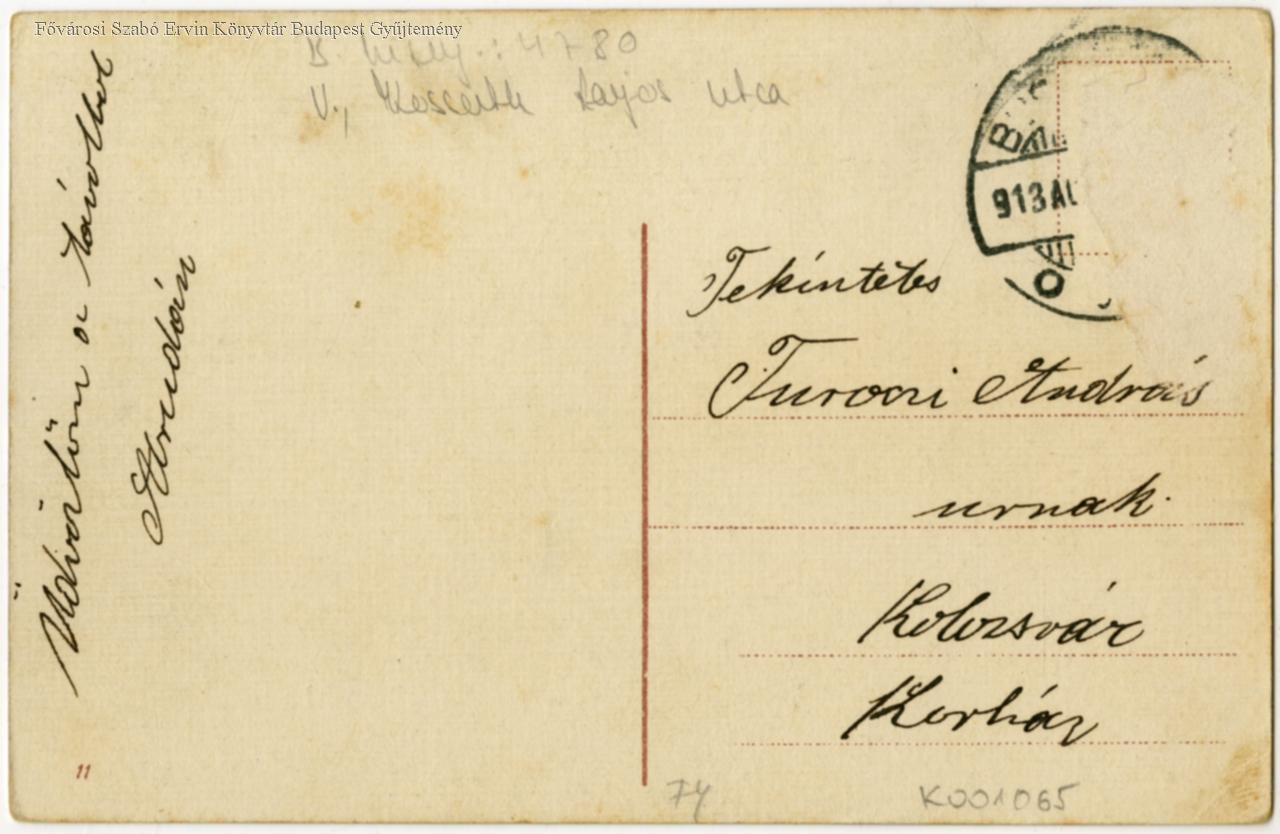 Fővárosi Szabó Ervin Könyvtár Budapest Gyűjtemény
B. helyj.: 4780
V., Kossuth Lajos utca
913 AU
Üdvözlöm a távolból
Tekintetes
Turoczi András
urnak
Kolozsvár
Korház
11
74
K001065